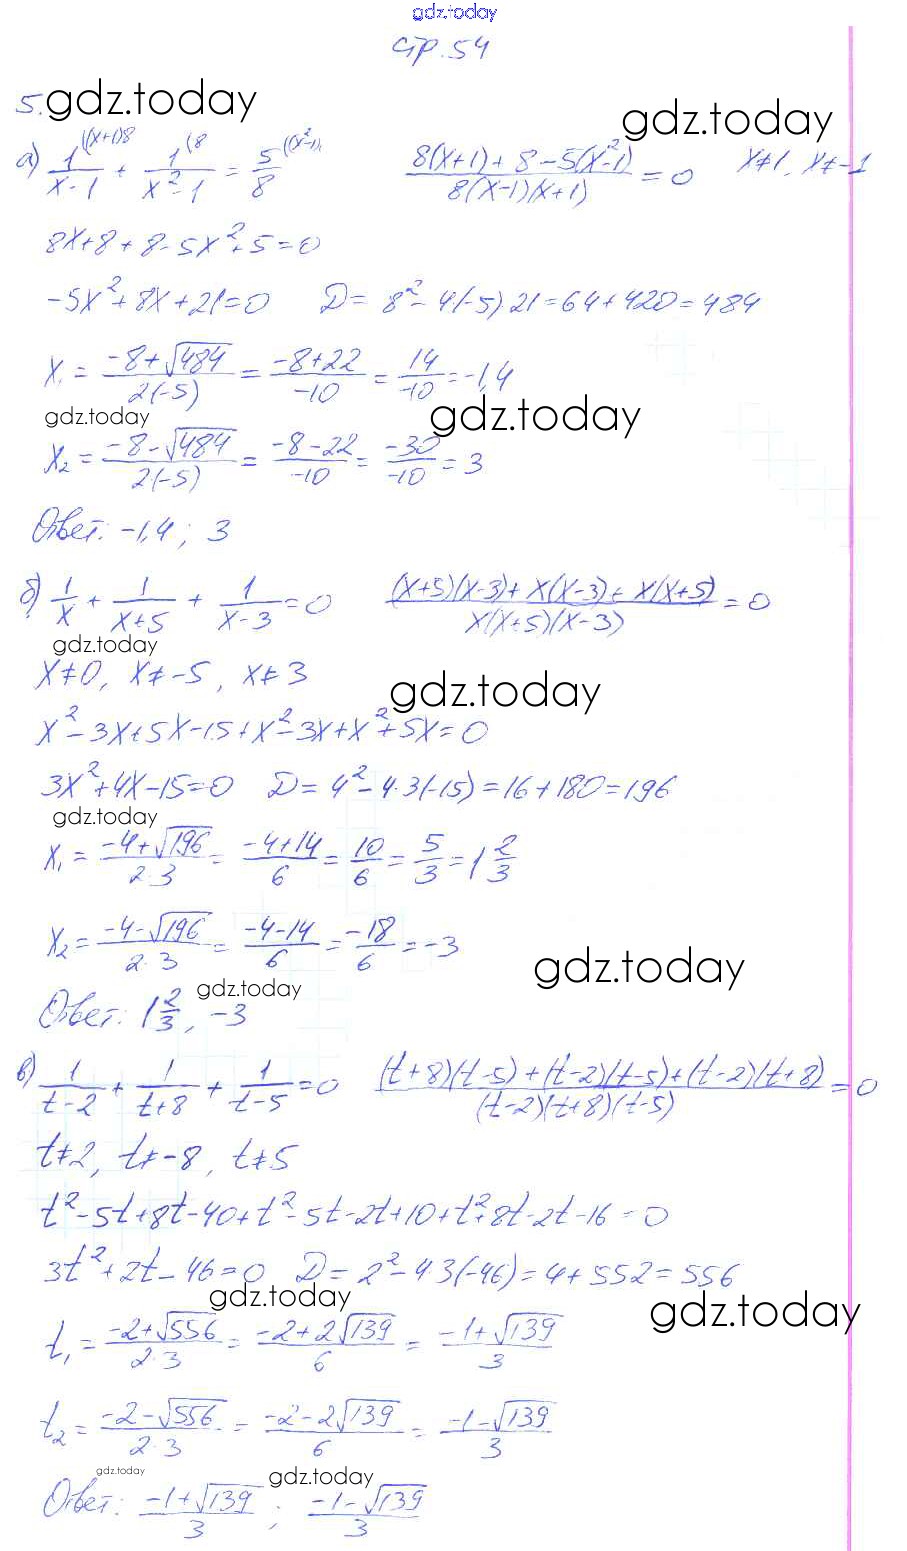 gdz.today
стр. 54
5. gdz.today
gdz.today
а) 1/(x-1) ^((x+1)8 + 1/(x²-1) ^(8 = 5/8 ^((x²-1) (8(x+1) + 8 - 5(x²-1))/(8(x-1)(x+1)) = 0 x≠1, x≠-1
8x+8+8-5x²+5=0
-5x²+8x+21=0 D = 8²-4(-5)21=64+420=484
x₁ = (-8+√484)/(2(-5)) = (-8+22)/(-10) = 14/(-10) = -1,4
gdz.today gdz.today
x₂ = (-8-√484)/(2·(-5)) = (-8-22)/(-10) = (-30)/(-10) = 3
Ответ: -1,4; 3
б) 1/x + 1/(x+5) + 1/(x-3) = 0 ((x+5)(x-3)+x(x-3)+x(x+5))/(x(x+5)(x-3)) = 0
gdz.today
x≠0, x≠-5, x≠3
gdz.today
x²-3x+5x-15+x²-3x+x²+5x=0
3x²+4x-15=0 D=4²-4·3(-15)=16+180=196
gdz.today
x₁ = (-4+√196)/(2·3) = (-4+14)/6 = 10/6 = 5/3 = 1 2/3
x₂ = (-4-√196)/(2·3) = (-4-14)/6 = -18/6 = -3
gdz.today
gdz.today
Ответ: 1 2/3, -3
в) 1/(t-2) + 1/(t+8) + 1/(t-5) = 0 ((t+8)(t-5)+(t-2)(t-5)+(t-2)(t+8))/((t-2)(t+8)(t-5)) = 0
t≠2, t≠-8, t≠5
t²-5t+8t-40+t²-5t-2t+10+t²+8t-2t-16=0
3t²+2t-46=0 D=2²-4·3(-46)=4+552=556
gdz.today gdz.today
t₁ = (-2+√556)/(2·3) = (-2+2√139)/6 = (-1+√139)/3
t₂ = (-2-√556)/(2·3) = (-2-2√139)/6 = (-1-√139)/3
gdz.today gdz.today
Ответ: (-1+√139)/3; (-1-√139)/3